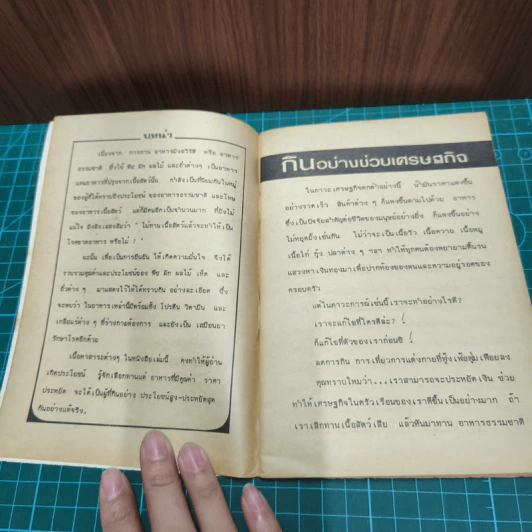 บทนำ
เนื่องจาก การทาน อาหารมังสวิรัติ หรือ อาหาร
ธรรมชาติ ซึ่งใช้ พืช ผัก ผลไม้ และถั่วต่างๆ เป็นอาหาร
แทนอาหารที่ปรุงจากเนื้อสัตว์นั้น กำลังเป็นที่นิยมกันในหมู่
ของผู้ที่ได้ทราบถึงประโยชน์ ของอาหารธรรมชาติ และโทษ
ของอาหารเนื้อสัตว์ แต่ก็มีคนอีกเป็นจำนวนมาก ที่ยังไม่
แน่ใจ ยังลังเลสงสัยว่า " ไม่ทานเนื้อสัตว์แล้วจะทำให้เป็น
โรคขาดอาหาร หรือไม่ ? "
ฉะนั้น เพื่อเป็นการยืนยัน ให้เกิดความมั่นใจ จึงได้
รวบรวมคุณค่าและประโยชน์ของ พืช ผัก ผลไม้ เห็ด และ
ถั่วต่าง ๆ มาแสดงไว้ให้ได้ทราบกัน อย่างละเอียด ซึ่ง
จะพบว่า ในอาหารเหล่านี้มีพร้อมทั้ง โปรตีน วิตามิน และ
เกลือแร่ต่าง ๆ ที่ร่างกายต้องการ และยังเป็น เสมือนยา
รักษาโรคอีกด้วย
เนื้อหาสาระต่างๆ ในหนังสือเล่มนี้ คงทำให้ผู้อ่าน
เกิดประโยชน์ รู้จักเลือกทานแต่ อาหารที่มีคุณค่า ราคา
ประหยัด จะได้เป็นผู้ที่กินอย่าง ประโยชน์สูง-ประหยัดสุด
กันอย่างแท้จริง.
กินอย่างช่วยเศรษฐกิจ
ในภาวะเศรษฐกิจตกต่ำอย่างนี้ น้ำมันราคาแพงขึ้น
อย่างรวดเร็ว สินค้าต่าง ๆ ก็แพงขึ้นตามไปด้วย อาหาร
ซึ่งเป็นปัจจัยสำคัญต่อชีวิตของมนุษย์อย่างยิ่ง ก็แพงขึ้นอย่าง
ไม่หยุดยั้งเช่นกัน ไม่ว่าจะเป็นเนื้อวัว เนื้อควาย เนื้อหมู
เนื้อไก่ กุ้ง ปลาต่าง ๆ ฯลฯ ทำให้ทุกคนต้องพยายามดิ้นรน
แสวงหาเงินทองมาเพื่อปากท้องของตนและความอยู่รอดของ
ครอบครัว
แต่ในภาวะการณ์เช่นนี้ เราจะทำอย่างไรดี?
เราจะแก้ไขที่ใครดีล่ะ ?
ก็แก้ไขที่ตัวของเราก่อนซิ !
ลดการกิน การเที่ยวการแต่งกายที่ฟุ้งเฟ้อฟุ่มเฟือยลง
คุณทราบไหมว่า...เราสามารถจะประหยัดเงิน ช่วย
ทำให้เศรษฐกิจในครัวเรือนของเราดีขึ้นเป็นอย่างมาก ถ้า
เราเลิกทานเนื้อสัตว์เสีย แล้วหันมาทาน อาหารธรรมชาติ